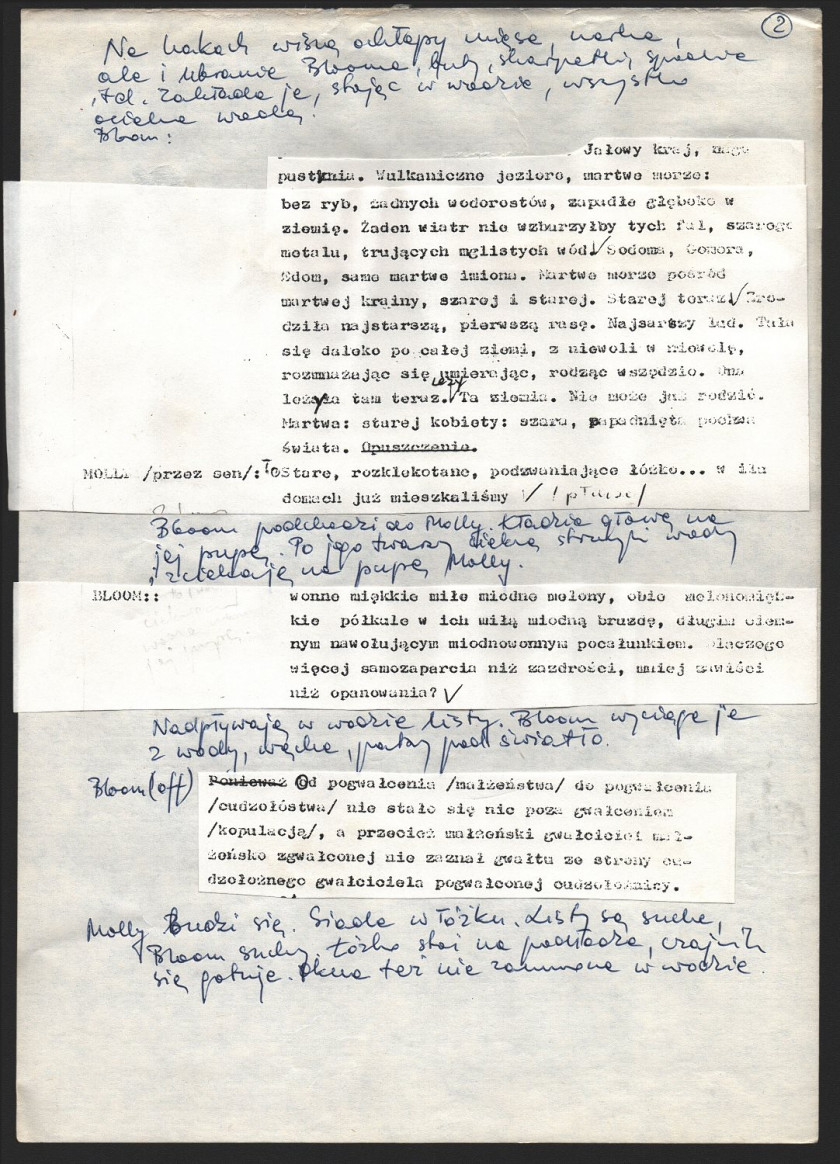 2
Na hakach wiszą ochłapy mięsa, nerka,
ale i ubranie Blooma, buty, skarpetki, spodnie
itd. Zakłada je, stojąc w wodzie, wszystko
ocieka wodą.
Bloom:
Jałowy kraj, naga
pustynia. Wulkaniczne jezioro, martwe morze:
bez ryb, żadnych wodorostów, zapadłe głęboko w
ziemię. Żaden wiatr nie wzburzyłby tych fal, szarego
metalu, trujących mglistych wód. Sodoma, Gomora,
Edom, same martwe imiona. Martwe morze pośród
martwej krainy, szarej i starej. Starej teraz. Zro-
dziła najstarszą, pierwszą rasę. Najsarszy lud. Tuła
się daleko po całej ziemi, z niewoli w niewolę,
rozmnażając się, umierając, rodząc wszędzie. Ona
leży tam teraz. Ta ziemia. Nie może już rodzić.
Martwa: starej kobiety: szara, zapadnięta pochwa
świata. Opuszczenie.
MOLLY /przez sen/: To Stare, rozklekotane, podzwaniające łóżko... w ilu
domach już mieszkaliśmy
Bloom podchodzi do Molly. Kładzie głowę na
jej pupę. Po jego twarzy cieknę strużki wody
i ściekają na pupę Molly.
BLOOM:: wonne miękkie miłe miodne melony, obie melonomięk-
kie półkule w ich miłą miodną bruzdę, długim ciem-
nym nawołującym miodnowonnym pocałunkiem. Dlaczego
więcej samozaparcia niż zazdrości, mniej zawiści
niż opanowania?
Nadpływają w wodzie listy. Bloom wyciąga je
z wody, wącha, patrzy pod światło.
Bloom (off) Ponieważ Od pogwałcenia /małżeństwa/ do pogwałcenia
/cudzołóstwa/ nie stało się nic poza gwałceniem
/kopulacją/, a przecież małżeński gwałciciel mał-
żeńsko zgwałconej nie zaznał gwałtu ze strony cu-
dzołożnego gwałciciela pogwałconej cudzołożnicy.
Molly budzi się. Siada w łóżku. Listy są suche,
Bloom suchy, łóżko stoi na podłodze, czajnik
się gotuje. Okna też nie zanurzone w wodzie.